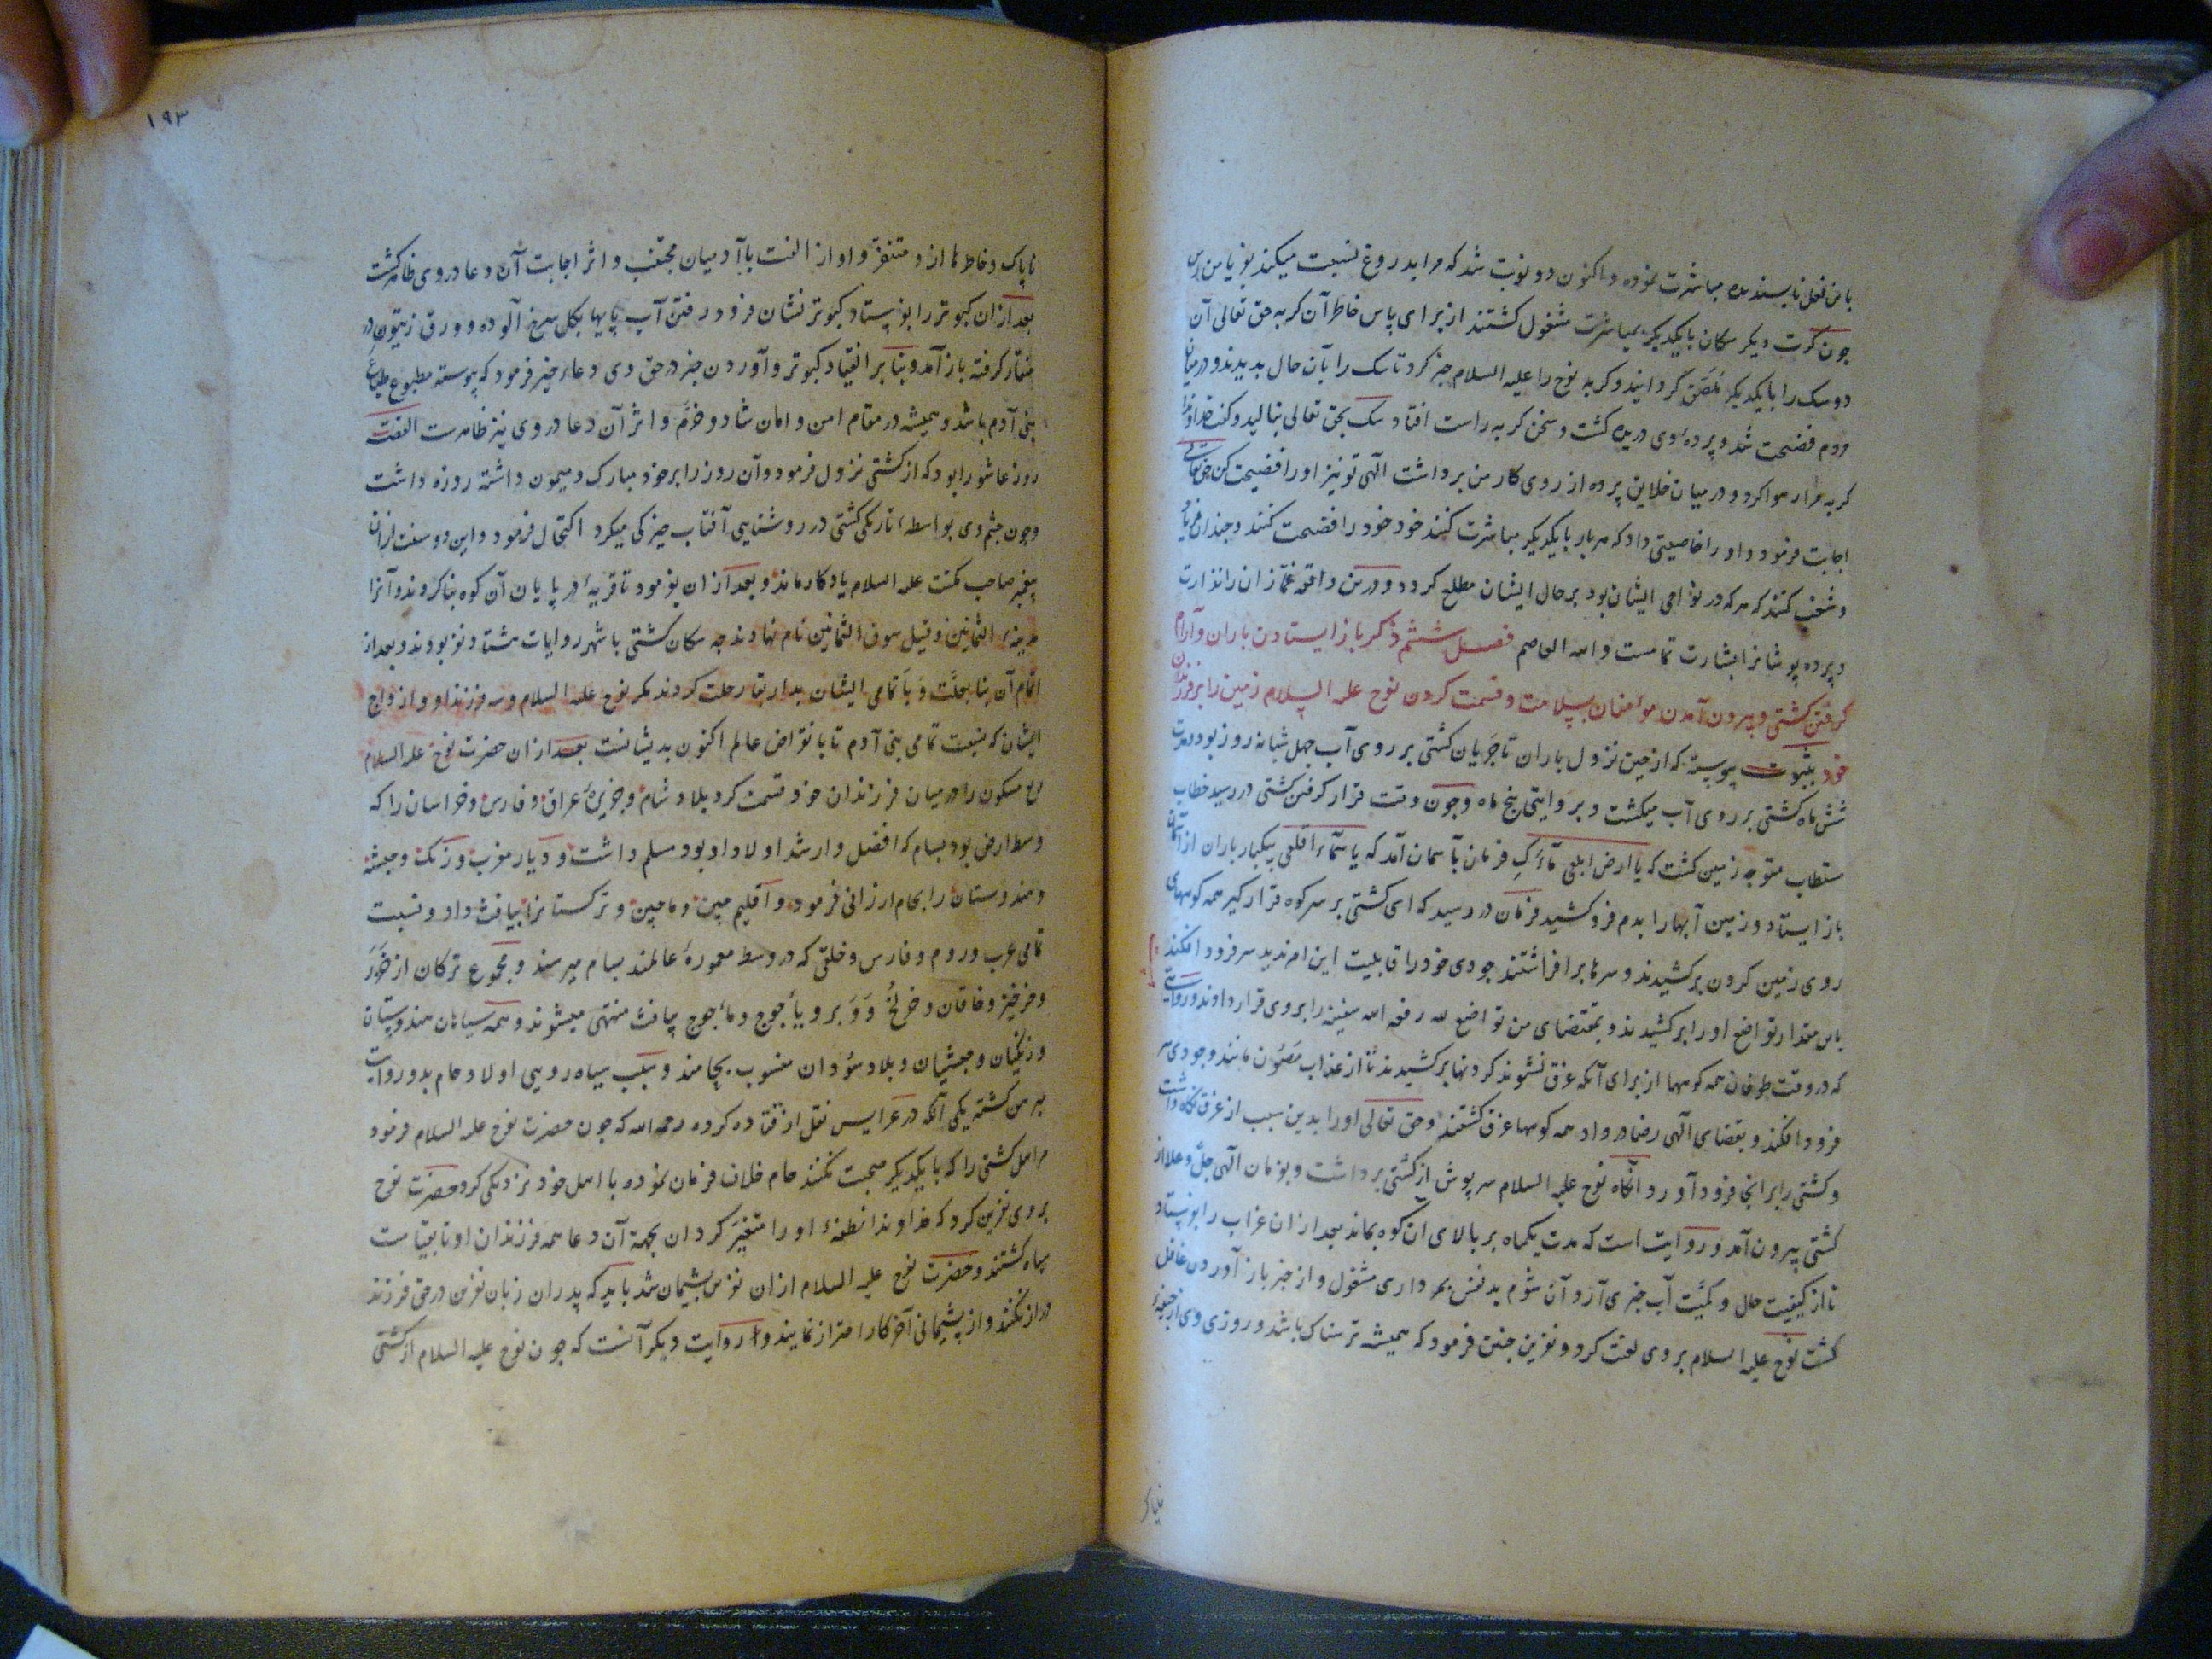 باین فعل ناپسندیده مباشرت نموده و اکنون دو نوبت شد که مرا بدروغ نسبت میکند
چون کرت دیگر سکان بایکدیگر بمباشرت مشغول کشتند از برای پاس خاطر آن کربه حق تعالی آن
دو سک را بایکدیگر ملصق کردانید و کربه نوح را علیه السلام خبر کرد تا سک را بآن حال بدیدند و در میان
مردم فضیحت شد و پردهٔ وی دریده کشت و سخن کربه راست افتاد سک بحق تعالی بنالید و کفت خداوندا
کربه مرا رسوا کرد و در میان خلایق پرده از روی کار من برداشت الهی تو نیز او را فضیحت کن حق تعالی
اجابت فرمود و او را خاصیتی داد که هر بار بایکدیگر مباشرت کنند خود خود را فضیحت کنند و چندان فریاد
و شغب کنند که هر که در نواحی ایشان بود بر حال ایشان مطلع کردد و درین واقعه غمازان را نذارت
و پرده پوشانرا بشارت تمامست والله العاصم فصل ششم ذکر باز ایستادن باران و آرام
کرفتن کشتی و بیرون آمدن مؤمنان بسلامت و قسمت کردن نوح علیه السلام زمین را بر فرزندان
خود بثبوت پیوسته که از حین نزول باران تا جریان کشتی بر روی آب چهل شبانه روز بود و مدت
شش ماه کشتی بر روی آب میکشت و بروایتی پنج ماه و چون وقت قرار کرفتن کشتی در رسید خطاب
مستطاب متوجه زمین کشت که یا ارض ابلعی ماءک فرمان بآسمان آمد که یا سماء اقلعی بیکبار باران از آسمان
باز ایستاد و زمین آبها را بدم فرو کشید فرمان در رسید که ای کشتی بر سر کوه قرار کیر همه کوههای
روی زمین کردن برکشیدند و سرها برافراشتند جودی خود را قابلیت این امر ندید سر فرود افکند
باین مقدار تواضع او را برکشیدند و بمقتضای من تواضع لله رفعه الله سفینه را بروی قرار دادند و روایتی
که در وقت طوفان همه کوهها از برای آنکه غرق نشوند کردنها برکشیدند تا از عذاب مصون مانند و جودی سر
فرود افکند و بقضای الهی رضا در داد همه کوهها غرق کشتند و حق تعالی او را بدین سبب از غرق نکاه داشت
و کشتی را بر انجا فرود آورد و آنکاه نوح علیه السلام سرپوش از کشتی برداشت و بفرمان الهی جل و علا از
کشتی بیرون آمد و روایت است که مدت یکماه بر بالای آن کوه بماند بعد از ان غراب را بفرستاد
تا از کیفیت حال و کمیت آب خبری آرد آن شوم بدنفس بمرداری مشغول و از خبر باز آوردن غافل
کشت نوح علیه السلام بروی لعنت کرد و نفرین چنین فرمود که همیشه ترسناک باشد و روزی وی از جیفهٔ
ناپاک
۱۹۳
ناپاک و خاطرها از و متنفر و او از الفت با آدمیان مجتنب و اثر اجابت آن دعا در وی ظاهر کشت
بعد از ان کبوتر را بفرستاد کبوتر نشان فرو رفتن آب پایها بکل سرخ آلوده و ورق زیتون در
منقار کرفته باز آمد و بنابر انقیاد کبوتر و آوردن خبر در حق وی دعاء خیر فرمود که پیوسته مطبوع طباع
بنی آدم باشد و همیشه در مقام امن و امان شاد و خرم و اثر آن دعا در وی نیز ظاهرست القصه
روز عاشورا بود که از کشتی نزول فرمود و آن روز را بر خود مبارک و میمون داشته روزه داشت
و چون چشم وی بواسطهٔ تاریکی کشتی در روشنایی آفتاب خیرکی میکرد اکتحال فرمود و این دو سنت از ان
پیغمبر صاحب مکنت علیه السلام یادکار ماند و بعد از ان بفرمود تا قریهٔ در پایان آن کوه بنا کردند و آنرا
مدینة الثمانین و قیل سوق الثمانین نام نهادند چه سکان کشتی باشهر روایات هشتاد نفر بودند و بعد از
اتمام آن بنا بعجلت و با تمامی ایشان بدار بقا رحلت کردند مکر نوح علیه السلام و سه فرزند او و ازواج
ایشان که نسبت تمامی بنی آدم تا بانقراض عالم اکنون بدیشانست بعد از ان حضرت نوح علیه السلام
ربع مسکون را در میان فرزندان خود قسمت کرد بلاد شام و جزیره عراق و فارس و خراسان را که
وسط ارض بود بسام که افضل و ارشد اولاد او بود مسلم داشت و دیار مغرب و زنک و حبشه
و هندوستان را بحام ارزانی فرمود و اقلیم چین و ماچین و ترکستانرا بیافث داد و نسبت
تمامی عرب و روم و فارس و خلقی که در وسط معمورهٔ عالمند بسام میرسند و مجموع ترکان از خزر
و خرخیز و خاقان و خرلخ و و بر و یأجوج و مأجوج بیافث منتهی میشوند و همه سیاهان هندوستان
و زنکیان و حبشیان و بلاد سودان منسوب بحامند و سبب سیاه رویی اولاد حام بدو روایت
مبرهن کشته یکی آنکه در عرایس نقل از قتاده کرده رحمه الله که چون حضرت نوح علیه السلام فرمود
مر اهل کشتی را که بایکدیگر صحبت نکنند حام خلاف فرمان نموده با اهل خود نزدیکی کرد حضرت نوح
بروی نفرین کرد که خداوندا نطفهٔ او را متغیر کردان بجهة آن دعا همه فرزندان او تا بقیامت
سیاه کشتند و حضرت نوح علیه السلام از ان نفرین پشیمان شد باید که پدران زبان نفرین در حق فرزند
دراز نکنند و از پشیمانی آخر کار احتراز نمایند و روایت دیکر آنست که چون نوح علیه السلام از کشتی